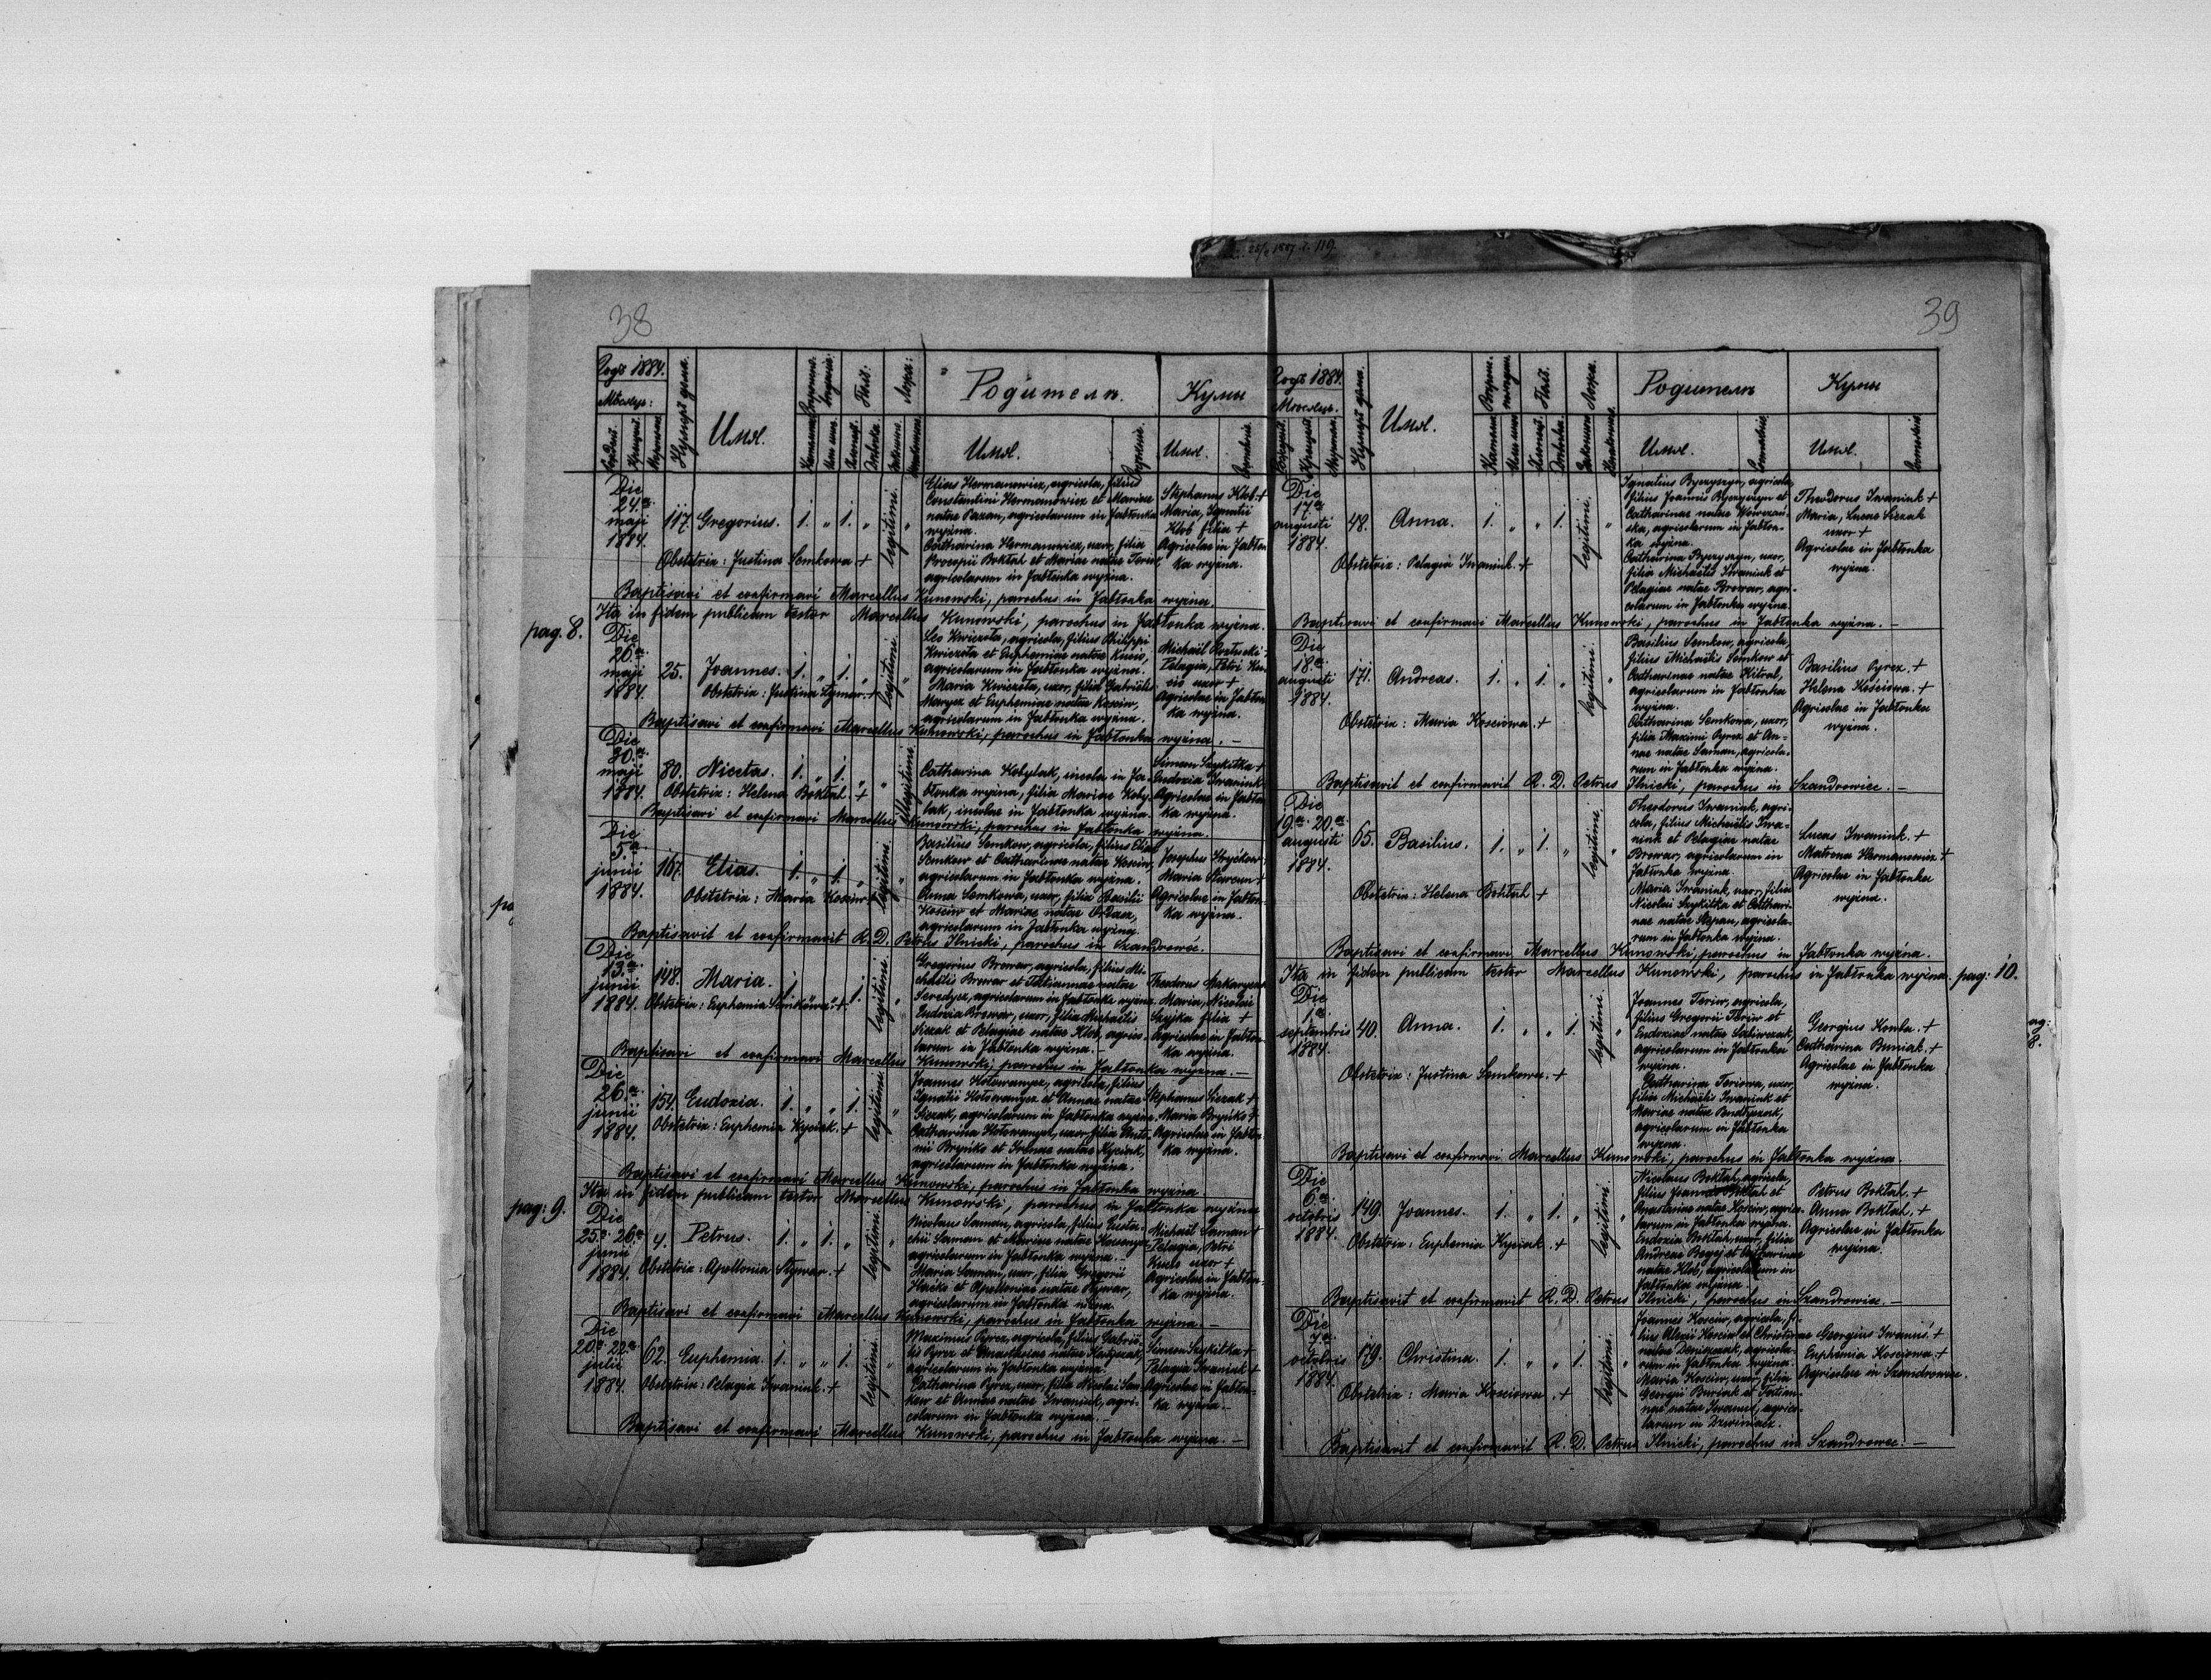 25/2 1887. l. 119.
38
Годъ 1884.
Мѣсяцъ:
Нумеръ дома.
Имя.
Полъ:
Ложа:
Родители.
Купы
Имя.
Имя.
Die
24.a
maji
1884.
117. Gregorius. 1. „ 1. „ legitimi. „
Obstetrix: Justina Semkowa +
Elias Hermanowicz, agricola, filius
Constantini Hermanowicz et Mariae
natae Pazan, agricolarum in Jabłonka
wyżna.
Catharina Hermanowicz, uxor, filia
Procopii Boktah et Mariae natae Teriw,
agricolarum in Jabłonka wyżna.
Stephanus Klob. +
Maria, Ignatii
Klob filia +
Agricolae in Jabłon
ka wyżna.
Baptisavi et confirmavi Marcellus Kunowski, parochus in Jabłonka wyżna.
Ita in fidem publicam testor Marcellus Kunowski, parochus in Jabłonka wyżna.
pag. 8.
Die
26.a
maji
1884.
25. Joannes. 1. „ 1. „ legitimi. „
Obstetrix: Justina Stynar. +
Leo Kwiczota, agricola, filius Philippi
Kwiczota et Euphemiae natae Kucio,
agricolarum in Jabłonka wyżna.
Maria Kwiczota, uxor, filia Gabriëlis
Marycz et Euphemiae natae Kosciw,
agricolarum in Jabłonka wyżna.
Michaël
Pelagia, Petri
uxor +
Agricolae in Jabłon
ka wyżna.
Baptisavi et confirmavi Marcellus Kunowski, parochus in Jabłonka wyżna. —
Die
30.a
maji
1884.
80. Nicetas. 1. „ 1. „ „ illegitimi.
Obstetrix: Helena Boktah. +
Catharina Kobylak, incola in Ja-
błonka wyżna, filia Mariae Koby-
lak, incolae in Jabłonka wyżna.
Simeon Szykitka +
Eudoxia Iwaniuk
Agricolae in Jabłon
ka wyżna.
Baptisavi et confirmavi Marcellus Kunowski, parochus in Jabłonka wyżna.
Die
5.a
junii
1884.
167. Elias. 1. „ 1. „ legitimi. „
Obstetrix: Maria Kosciw +
Basilius Semkow, agricola, filius Eliae
Semkow et Catharinae natae Kosciw,
agricolarum in Jabłonka wyżna.
Anna Semkowa, uxor, filia Basilii
Kosciw et Mariae natae
agricolarum in Jabłonka wyżna.
Josephus Hryckow
Maria
Agricolae in Jabłon-
ka wyżna.
Baptisavit et confirmavit R. D. Petrus Ilnicki, parochus in Szandrowec.
Die
13.a
junii
1884.
148. Maria. 1. „ „ 1. legitimi. „
Obstetrix: Euphemia Semkowa. +
Gregorius Browar, agricola, filius Mi-
chaëlis Browar et Tatiannae natae
Seredycz, agricolarum in Jabłonka wyżna.
Eudoxia Browar, uxor, filia Michaëlis
Siczak et Pelagiae natae Klob, agrico-
larum in Jabłonka wyżna. —
Theodorus
Maria, Nicolai
Szyjka filia +
Agricolae in Jabłon-
ka wyżna.
Baptisavi et confirmavi Marcellus Kunowski, parochus in Jabłonka wyżna. —
Die
26.a
junii
1884.
154. Eudoxia. 1. „ „ 1. legitimi. „
Obstetrix: Euphemia Kyciak. +
Joannes Hotowanycz, agricola, filius
Ignatii Hotowanycz et Annae natae
Siczak, agricolarum in Jabłonka wyżna.
Catharina Hotowanycz, uxor, filia Anto-
nii Bryńko et Irenae natae Kyciak,
agricolarum in Jabłonka wyżna.
Stephanus Siczak +
Maria Bryńko +
Agricolae in Jabłon
ka wyżna.
Baptisavi et confirmavi Marcellus Kunowski, parochus in Jabłonka wyżna
Ita in fidem publicam testor Marcellus Kunowski, parochus in Jabłonka wyżna
pag: 9.
Die
25.a 26.a
junii
1884.
4. Petrus. 1. „ 1. „ legitimi. „
Obstetrix: Apollonia Stynar. +
Nicolaus Saman, agricola, filius Eusta-
chii Saman et Mariae natae
agricolarum in Jabłonka wyżna. —
Maria Saman, uxor, filia Gregorii
Hacko et Apolloniae natae Stynar,
agricolarum in Jabłonka wyżna.
Michaël Saman +
Pelagia, Petri
Kucio uxor +
Agricolae in Jabłon-
ka wyżna.
Baptisavi et confirmavi Marcellus Kunowski, parochus in Jabłonka wyżna. —
Die
20.a 22.a
julii
1884.
62. Euphemia. 1. „ „ 1. legitimi. „
Obstetrix: Pelagia Iwaniuk. +
Maximus Pyrcz, agricola, filius Gabrië-
lis Pyrcz et Anastasiae natae
agricolarum in Jabłonka wyżna.
Catharina Pyrcz, uxor, filia Nicolai Sem-
kow et Annae natae Iwaniuk, agri-
colarum in Jabłonka wyżna. —
Simeon Szykitka +
Pelagia Iwaniuk +
Agricolae in Jabłon-
ka wyżna. —
Baptisavi et confirmavi Marcellus Kunowski, parochus in Jabłonka wyżna. —
39
Годъ 1884.
Мѣсяцъ.
Нумеръ дома.
Имя.
Полъ.
Ложа.
Родители
Купы
Имя.
Имя.
Die
17.a
augusti
1884.
48. Anna. 1. „ „ 1. legitimi. „
Obstetrix: Pelagia Iwaniuk. +
Ignatius Byczyszyn, agricola,
filius Joannis Byczyszyn et
Catharinae natae
ska, agricolarum in Jabłon-
ka wyżna.
Catharina Byczyszyn, uxor,
filia Michaëlis Iwaniuk et
Pelagiae natae Browar, agri-
colarum in Jabłonka wyżna.
Theodorus Iwaniuk +
Maria, Lucae Siczak
uxor +
Agricolae in Jabłonka
wyżna.
Baptisavi et confirmavi Marcellus Kunowski, parochus in Jabłonka wyżna. —
Die
18.a
augusti
1884.
171. Andreas. 1. „ 1. „ legitimi. „
Obstetrix: Maria Kosciowa. +
Basilius Semkow, agricola,
filius Michaëlis Semkow et
Catharinae natae Kitral,
agricolarum in Jabłonka
wyżna.
Catharina Semkowa, uxor,
filia Maximi Pyrcz et An-
nae natae Saman, agricola-
rum in Jabłonka wyżna.
Basilius Pyrcz. +
Helena Kościowa. +
Agricolae in Jabłonka
wyżna.
Baptisavit et confirmavit R. D. Petrus Ilnicki, parochus in Szandrowiec. —
Die
19.a 20.a
augusti
1884.
65. Basilius. 1. „ 1. „ legitimi. „
Obstetrix: Helena Boktah +
Theodorus Iwaniuk, agri-
cola, filius Michaëlis Iwa-
niuk et Pelagiae natae
Browar, agricolarum in
Jabłonka wyżna.
Maria Iwaniuk, uxor, filia
Nicolai Szykitka et Cathari-
nae natae Szpan, agricola-
rum in Jabłonka wyżna.
Lucas Iwaniuk. +
Matrona Hermanowicz +
Agricolae in Jabłonka
wyżna.
Baptisavi et confirmavi Marcellus Kunowski, parochus in Jabłonka wyżna.
Ita in fidem publicam testor Marcellus Kunowski, parochus in Jabłonka wyżna. pag: 10.
Die
1.a
septembris
1884.
40. Anna. 1. „ „ 1. legitimi. „
Obstetrix: Justina Semkowa. +
Joannes Teriw, agricola,
filius Gregorii Teriw et
Eudoxiae natae
agricolarum in Jabłonka
wyżna.
Catharina Teriowa, uxor,
filia Michaëlis Iwaniuk et
Mariae natae
agricolarum in Jabłonka
wyżna.
Georgius Konba. +
Catharina Buniak. +
Agricolae in Jabłonka
wyżna.
Baptisavi et confirmavi Marcellus Kunowski, parochus in Jabłonka wyżna.
Die
6.a
octobris
1884.
149. Joannes. 1. „ 1. „ legitimi. „
Obstetrix: Euphemia Kyciak. +
Nicolaus Boktah, agricola,
filius Joannis Boktah et
Anastasiae natae Kosciw, agrico-
larum in Jabłonka wyżna.
Eudoxia Boktah, uxor, filia
Andreae Begej et Catharinae
natae Klob, agricolarum in
Jabłonka wyżna.
Petrus Boktah. +
Anna Boktah. +
Agricolae in Jabłonka
wyżna.
Baptisavit et confirmavit R. D. Petrus Ilnicki, parochus in Szandrowiec. —
Die
7.a
octobris
1884.
179. Christina. 1. „ „ 1. legitimi. „
Obstetrix: Maria Kosciowa. +
Joannes Kosciw, agricola, fi-
lius Alexii Kosciw et Christinae
natae Denisczak, agricola-
rum in Jabłonka wyżna.
Maria Kosciw, uxor, filia
Georgii Buriak et Tatian-
nae natae Iwanus, agrico-
larum in Dzwiniacz.
Georgius Iwaniś. +
Euphemia Kosciowa. +
Agricolae in Szandrowiec.
Baptisavit et confirmavit R. D. Petrus Ilnicki, parochus in Szandrowec. —